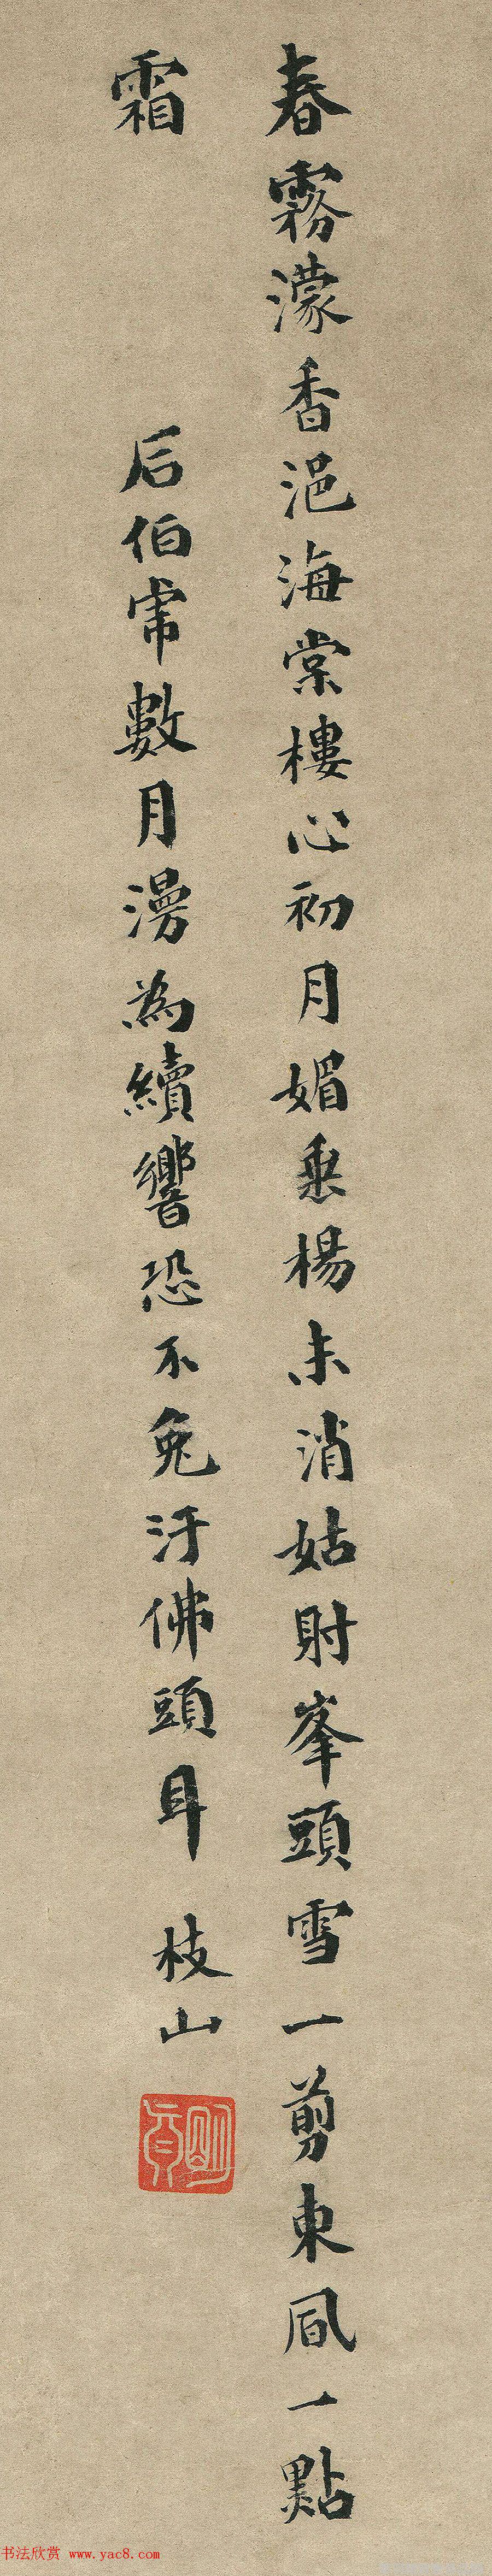 春霧濛香浥海棠樓心初月媚垂楊未消姑射峯頭雪一剪東風一點
霜
后伯常數月漫為續響恐不免汙佛頭耳 枝山
明貞
书法欣赏 www.yac8.com